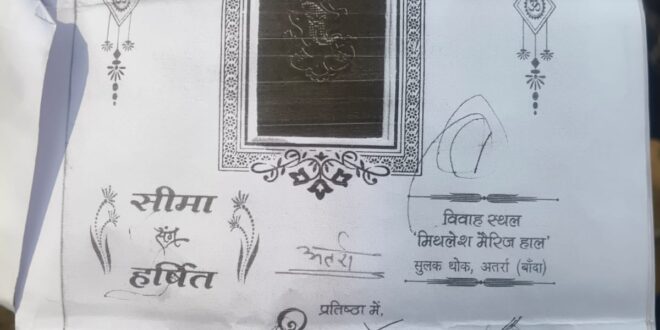 ॐ
सीमा
संग
हर्षित
अतर्रा
विवाह स्थल
'मिथलेश मैरिज हाल'
सुलक थोक, अतर्रा (बाँदा)
प्रतिष्ठा में,